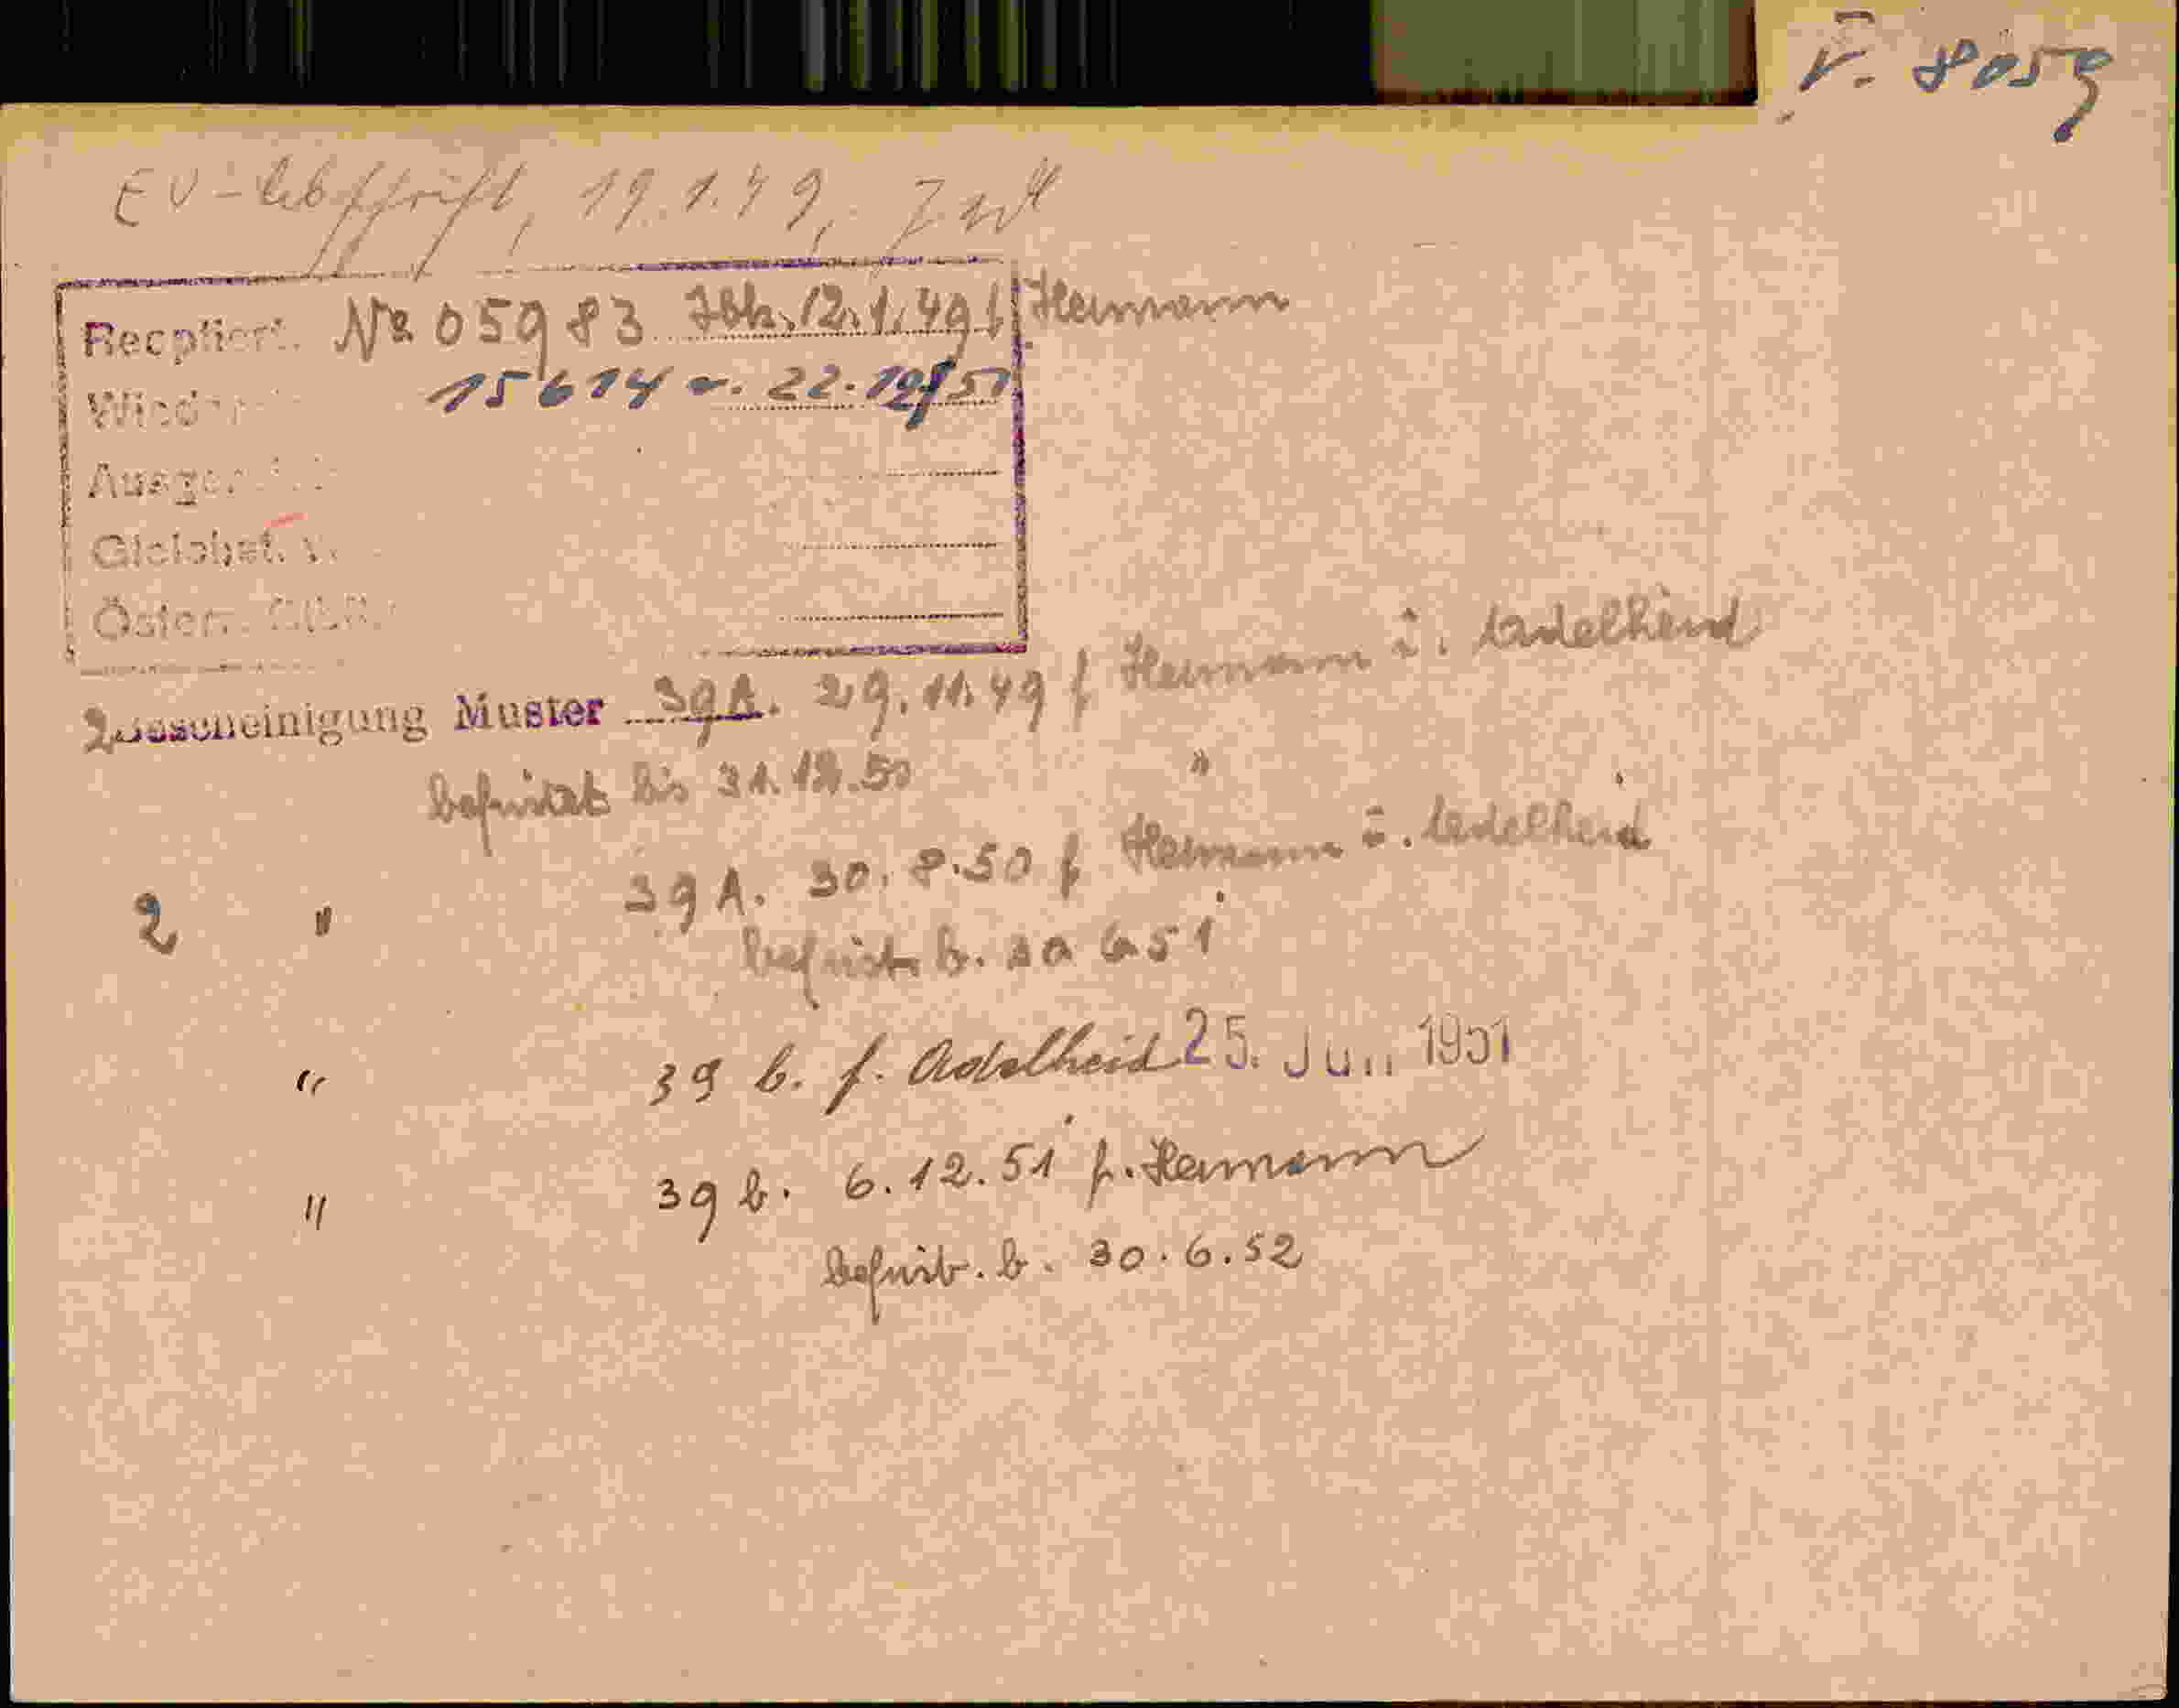 V. 8059
EV-Abschrift, 19.1.49,
Recptiert. No 05983 Ibk. 12.1.49 f Hermann
15614 v. 22.12.51
Gleichst. v.
Österr.
2 Bescheinigung Muster 39A. 29.11.49 f Hermann u. Adelheid
befristet bis 31.12.50 "
2 " 39A. 30.8.50 f Hermann u. Adelheid
befrist. b. 30 6 51
" 39 b. f. Adelheid 25. Jun. 1951
" 39 b. 6.12.51 f. Hermann
befrist. b. 30.6.52